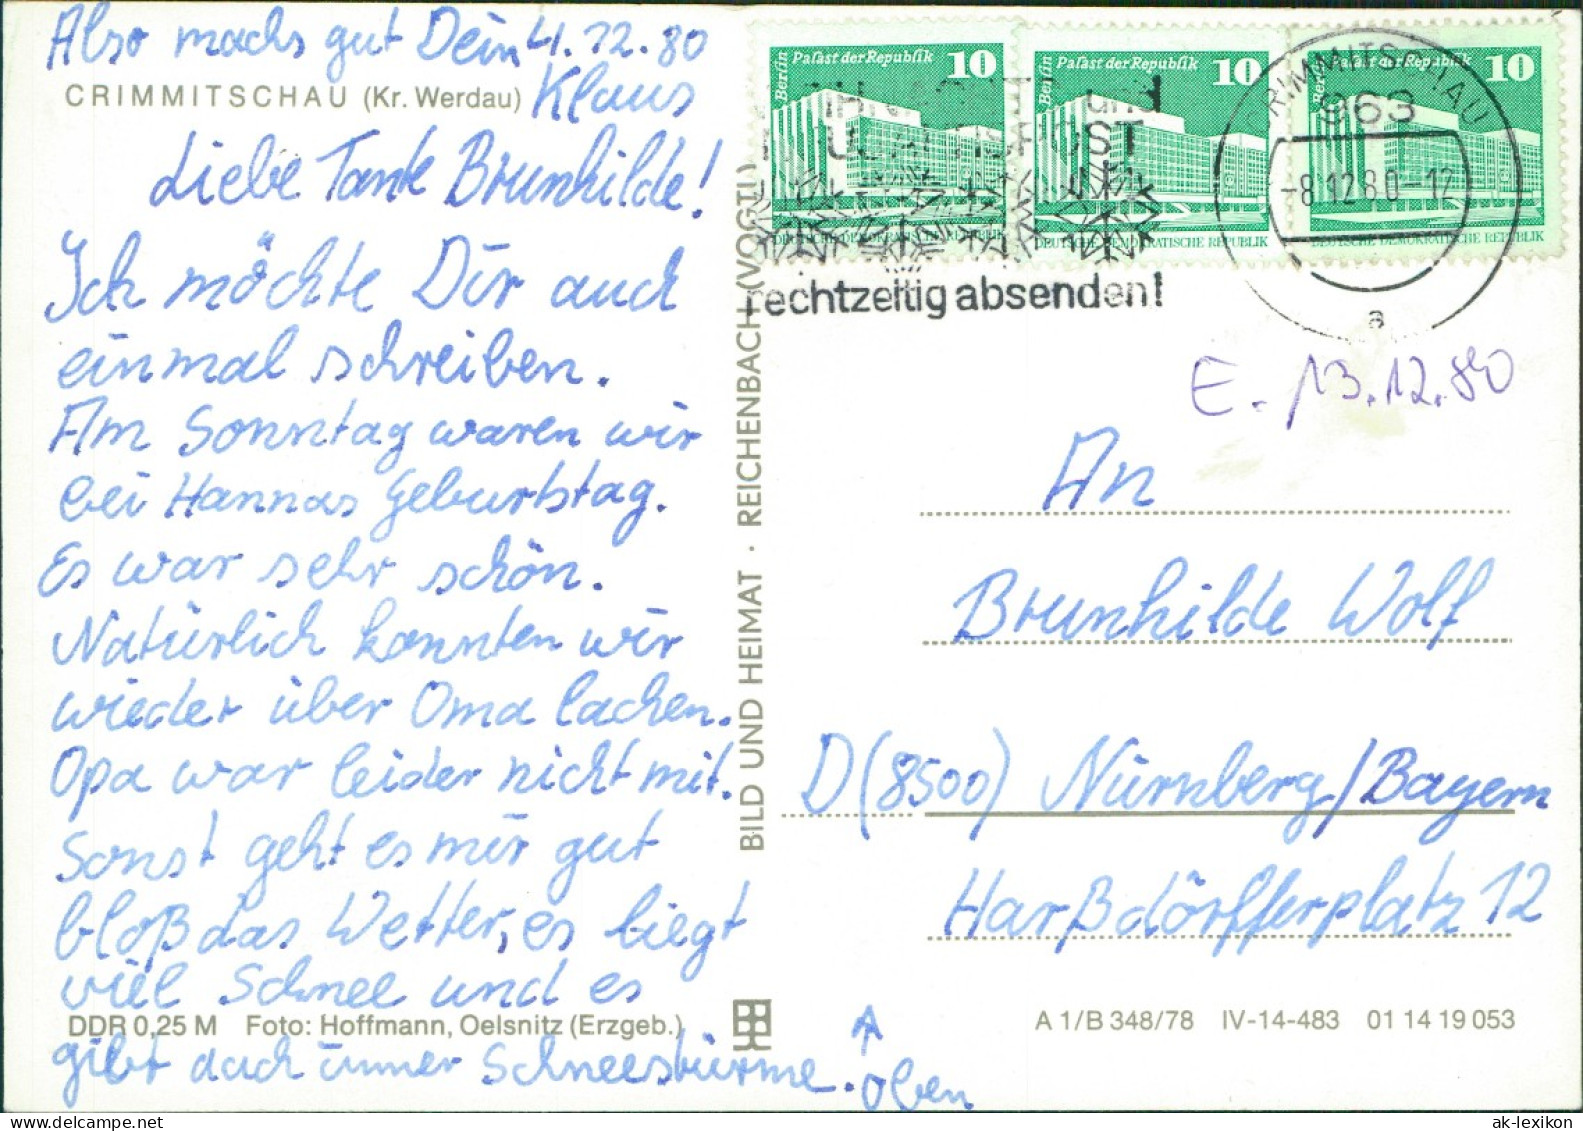 Also machs gut Dein 4.12.80
Klaus
CRIMMITSCHAU (Kr. Werdau)
Liebe Tante Brunhilde!
Ich möchte Dir auch
einmal schreiben.
Am Sonntag waren wir
bei Hannas Geburtstag.
Es war sehr schön.
Natürlich konnten wir
wieder über Oma lachen.
Opa war leider nicht mit.
Sonst geht es mir gut
bloß das Wetter, es liegt
viel Schnee und es
DDR 0,25 M Foto: Hoffmann, Oelsnitz (Erzgeb.)
gibt auch immer Schneestürme.
Oben
BILD UND HEIMAT · REICHENBACH (VOGTL)
Berlin Palast der Republik 10
DEUTSCHE DEMOKRATISCHE REPUBLIK
Berlin Palast der Republik 10
DEUTSCHE DEMOKRATISCHE REPUBLIK
Berlin Palast der Republik 10
DEUTSCHE DEMOKRATISCHE REPUBLIK
und
rechtzeitig absenden!
CRIMMITSCHAU
963
-8.12.80-12
a
E. 13.12.80
An
Brunhilde Wolf
D (8500) Nürnberg/Bayern
Harßdörfferplatz 12
A 1/B 348/78 IV-14-483 01 14 19 053
ak-lexikon